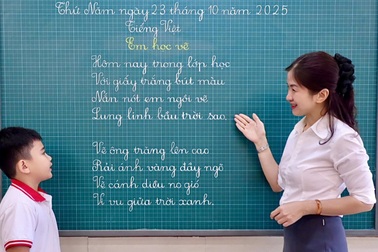 Thứ Năm ngày 23 tháng 10 năm 2025
Tiếng Việt
Em học vẽ
Hôm nay trong lớp học
Với giấy trắng bút màu
Nắn nót em ngồi vẽ
Lung linh bầu trời sao.
Vẽ ông trăng lên cao
Rải ánh vàng đầy ngõ
Vẽ cánh diều no gió
Vi vu giữa trời xanh.